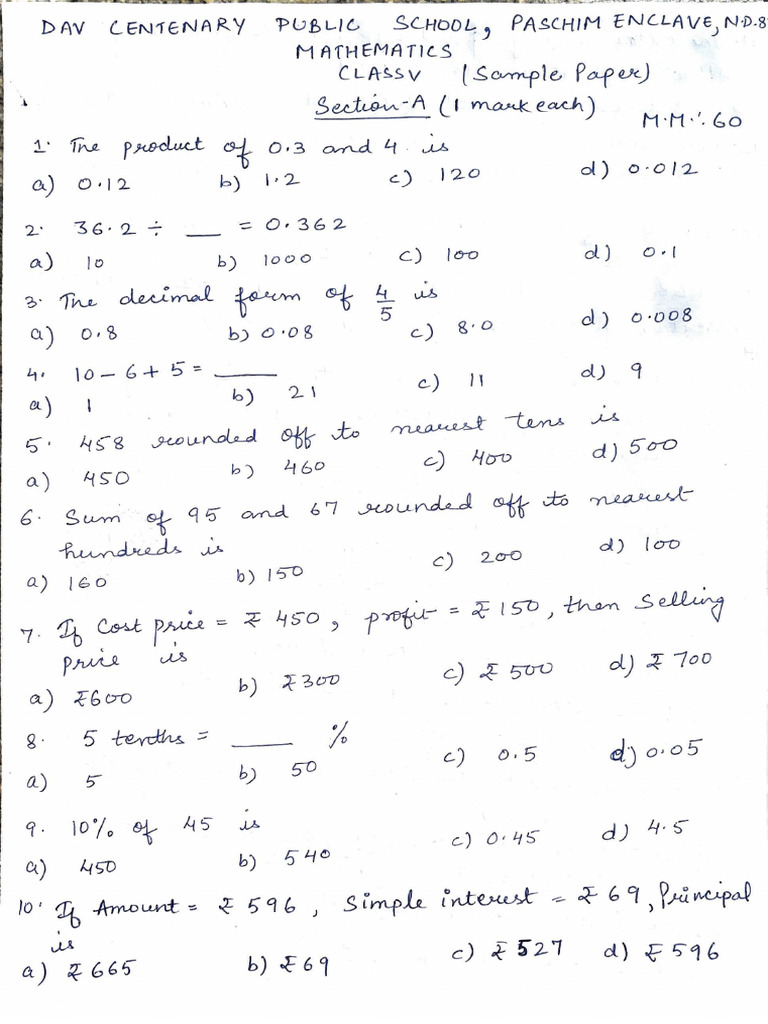 DAV CENTENARY PUBLIC SCHOOL, PASCHIM ENCLAVE, N.D.87
MATHEMATICS
CLASS V (Sample Paper)
Section-A (1 mark each)
M.M.: 60
1. The product of 0.3 and 4 is
a) 0.12 b) 1.2 c) 120 d) 0.012
2. 36.2 ÷ __ = 0.362
a) 10 b) 1000 c) 100 d) 0.1
3. The decimal form of 4/5 is
a) 0.8 b) 0.08 c) 8.0 d) 0.008
4. 10 - 6 + 5 = ____
a) 1 b) 21 c) 11 d) 9
5. 458 rounded off to nearest tens is
a) 450 b) 460 c) 400 d) 500
6. Sum of 95 and 67 rounded off to nearest
hundreds is
a) 160 b) 150 c) 200 d) 100
7. If Cost price = ₹ 450, profit = ₹ 150, then Selling
price is
a) ₹600 b) ₹300 c) ₹ 500 d) ₹ 700
8. 5 tenths = ____ %
a) 5 b) 50 c) 0.5 d) 0.05
9. 10% of 45 is
a) 450 b) 540 c) 0.45 d) 4.5
10. If Amount = ₹ 596, Simple interest = ₹ 69, Principal
is
a) ₹ 665 b) ₹69 c) ₹ 527 d) ₹ 596